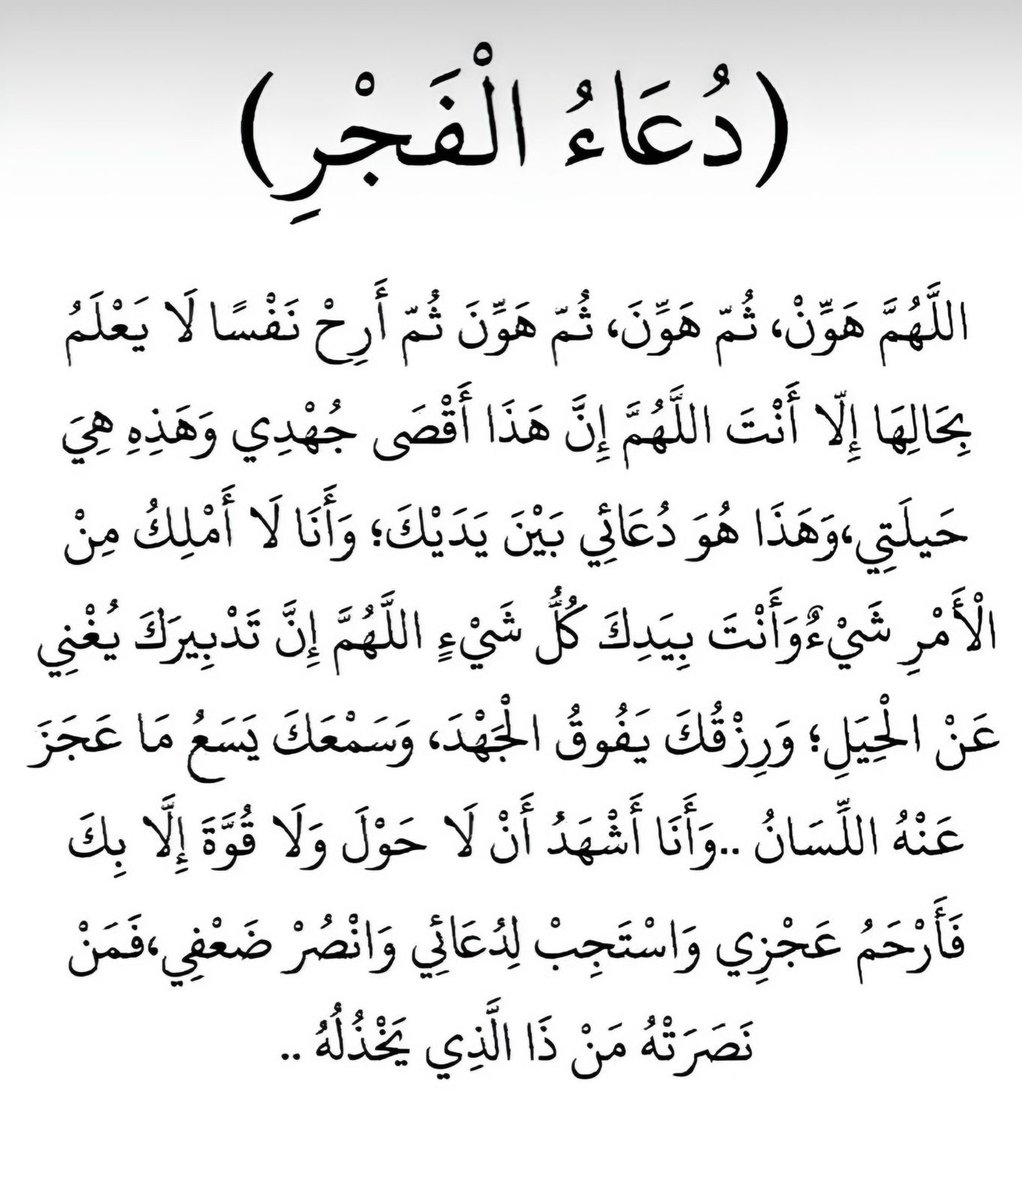 (دُعَاءُ الْفَجْرِ)
اللَّهُمَّ هَوِّنْ، ثُمّ هَوِّنَ، ثُمّ هَوِّنَ ثُمّ أَرِحْ نَفْسًا لَا يَعْلَمُ
بِحَالِهَا إِلّا أَنْتَ اللَّهُمَّ إِنَّ هَذَا أَقْصَى جُهْدِي وَهَذِهِ هِيَ
حَيلَتِي،وَهَذَا هُوَ دُعَائِي بَيْنَ يَدَيْكَ؛ وَأَنَا لَا أَمْلِكُ مِنْ
الْأَمْرِ شَيْءٌوَأَنْتَ بِيَدِكَ كُلُّ شَيْءٍ اللَّهُمَّ إِنَّ تَدْبِيرَكَ يُغْنِي
عَنْ الْحِيَلِ؛ وَرِزْقُكَ يَفُوقُ الْجَهْدَ، وَسَمْعَكَ يَسَعُ مَا عَجَزَ
عَنْهُ اللِّسَانُ ..وَأَنَا أَشْهَدُ أَنْ لَا حَوْلَ وَلَا قُوَّةَ إِلَّا بِكَ
فَأَرْحَمُ عَجْزِي وَاسْتَجِبْ لِدُعَائِي وَانْصُرْ ضَعْفِي،فَمَنْ
نَصَرَتْهُ مَنْ ذَا الَّذِي يَخْذُلُهُ ..